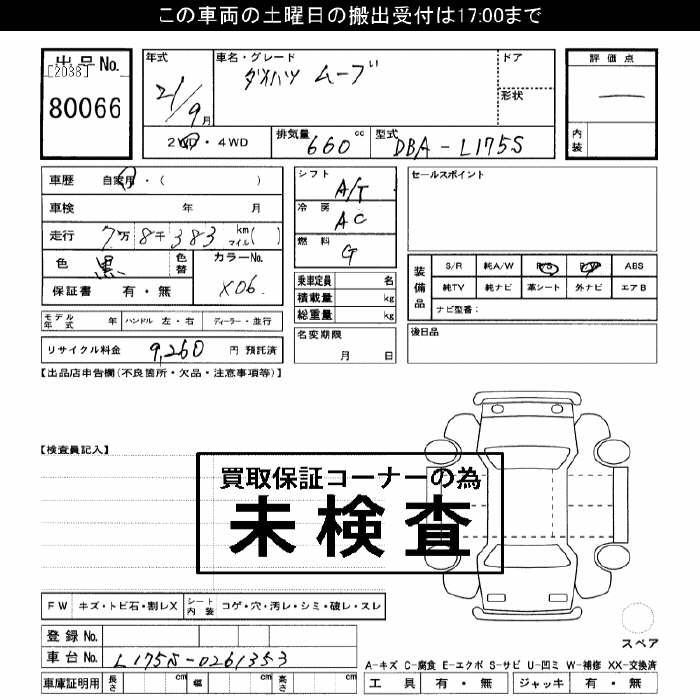 この車両の土曜日の搬出受付は17:00まで
出品No.
[2038]
80066
年式
21/9月
車名・グレード
ダイハツ ムーブ
ドア
形状
2WD・4WD
排気量 660 cc
型式 DBA-L175S
評価点
—
内装
車歴 自家用・( )
車検 年 月
走行 7万8千383 km マイル( )
色 黒
色替
カラーNo.
X06
保証書 有・無
モデル年式 年
ハンドル 左・右
ディーラー・並行
リサイクル料金 9,260 円 預託済
シフト A/T
冷房 AC
燃料 G
乗車定員 名
積載量 kg
総重量 kg
名変期限
月 日
セールスポイント
装備品
S/R 純A/W P/S P/W ABS
純TV 純ナビ 革シート 外ナビ エアB
ナビ型番:
後日品
【出品店申告欄(不良箇所・欠品・注意事項等)】
【検査員記入】
買取保証コーナーの為
未検査
FW キズ・トビ石・割レX
シート内装 コゲ・穴・汚レ・シミ・破レ・スレ
登録No.
車台No. L175S-0261353
車庫証明用 長さ cm 幅 cm 高さ cm
スペア
A-キズ C-腐食 E-エクボ S-サビ U-凹ミ W-補修 XX-交換済
工具 有・無 ジャッキ 有・無